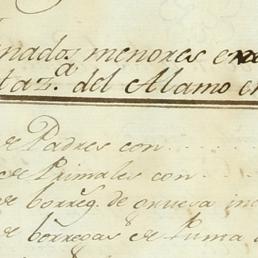 inados menores en
taz.ª del Alamo en
de Padres con
de Primales con
de borreg.s de gruesa in
de borregas de Puma